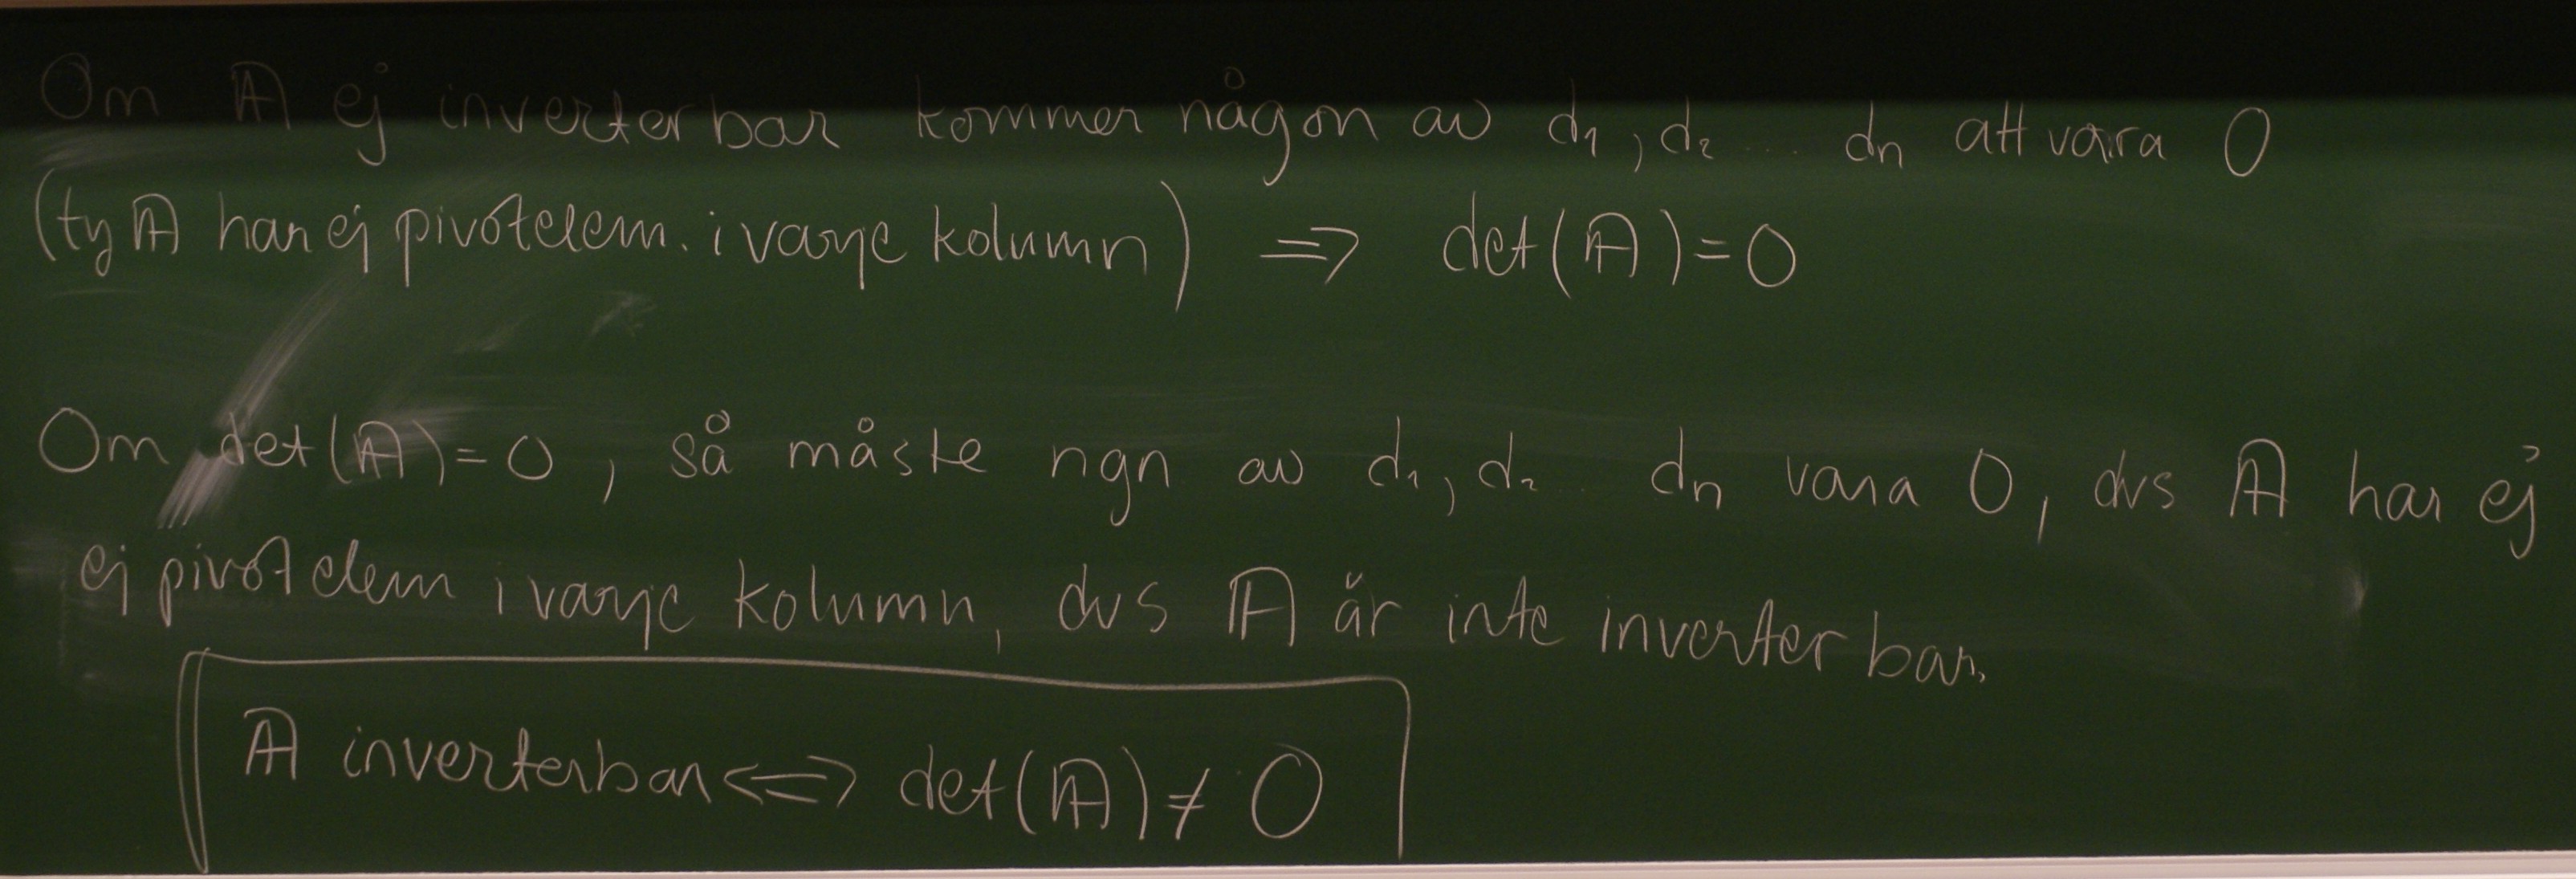 Om A ej inverterbar kommer någon av d₁, d₂ ... dn att vara 0
(ty A har ej pivotelem. i varje kolumn) => det(A)=0
Om det(A)=0, så måste ngn av d₁, d₂ .. dn vara 0, dvs A har ej
ej pivotelem i varje kolumn, dvs A är inte inverterbar.
A inverterbar <=> det(A) ≠ 0